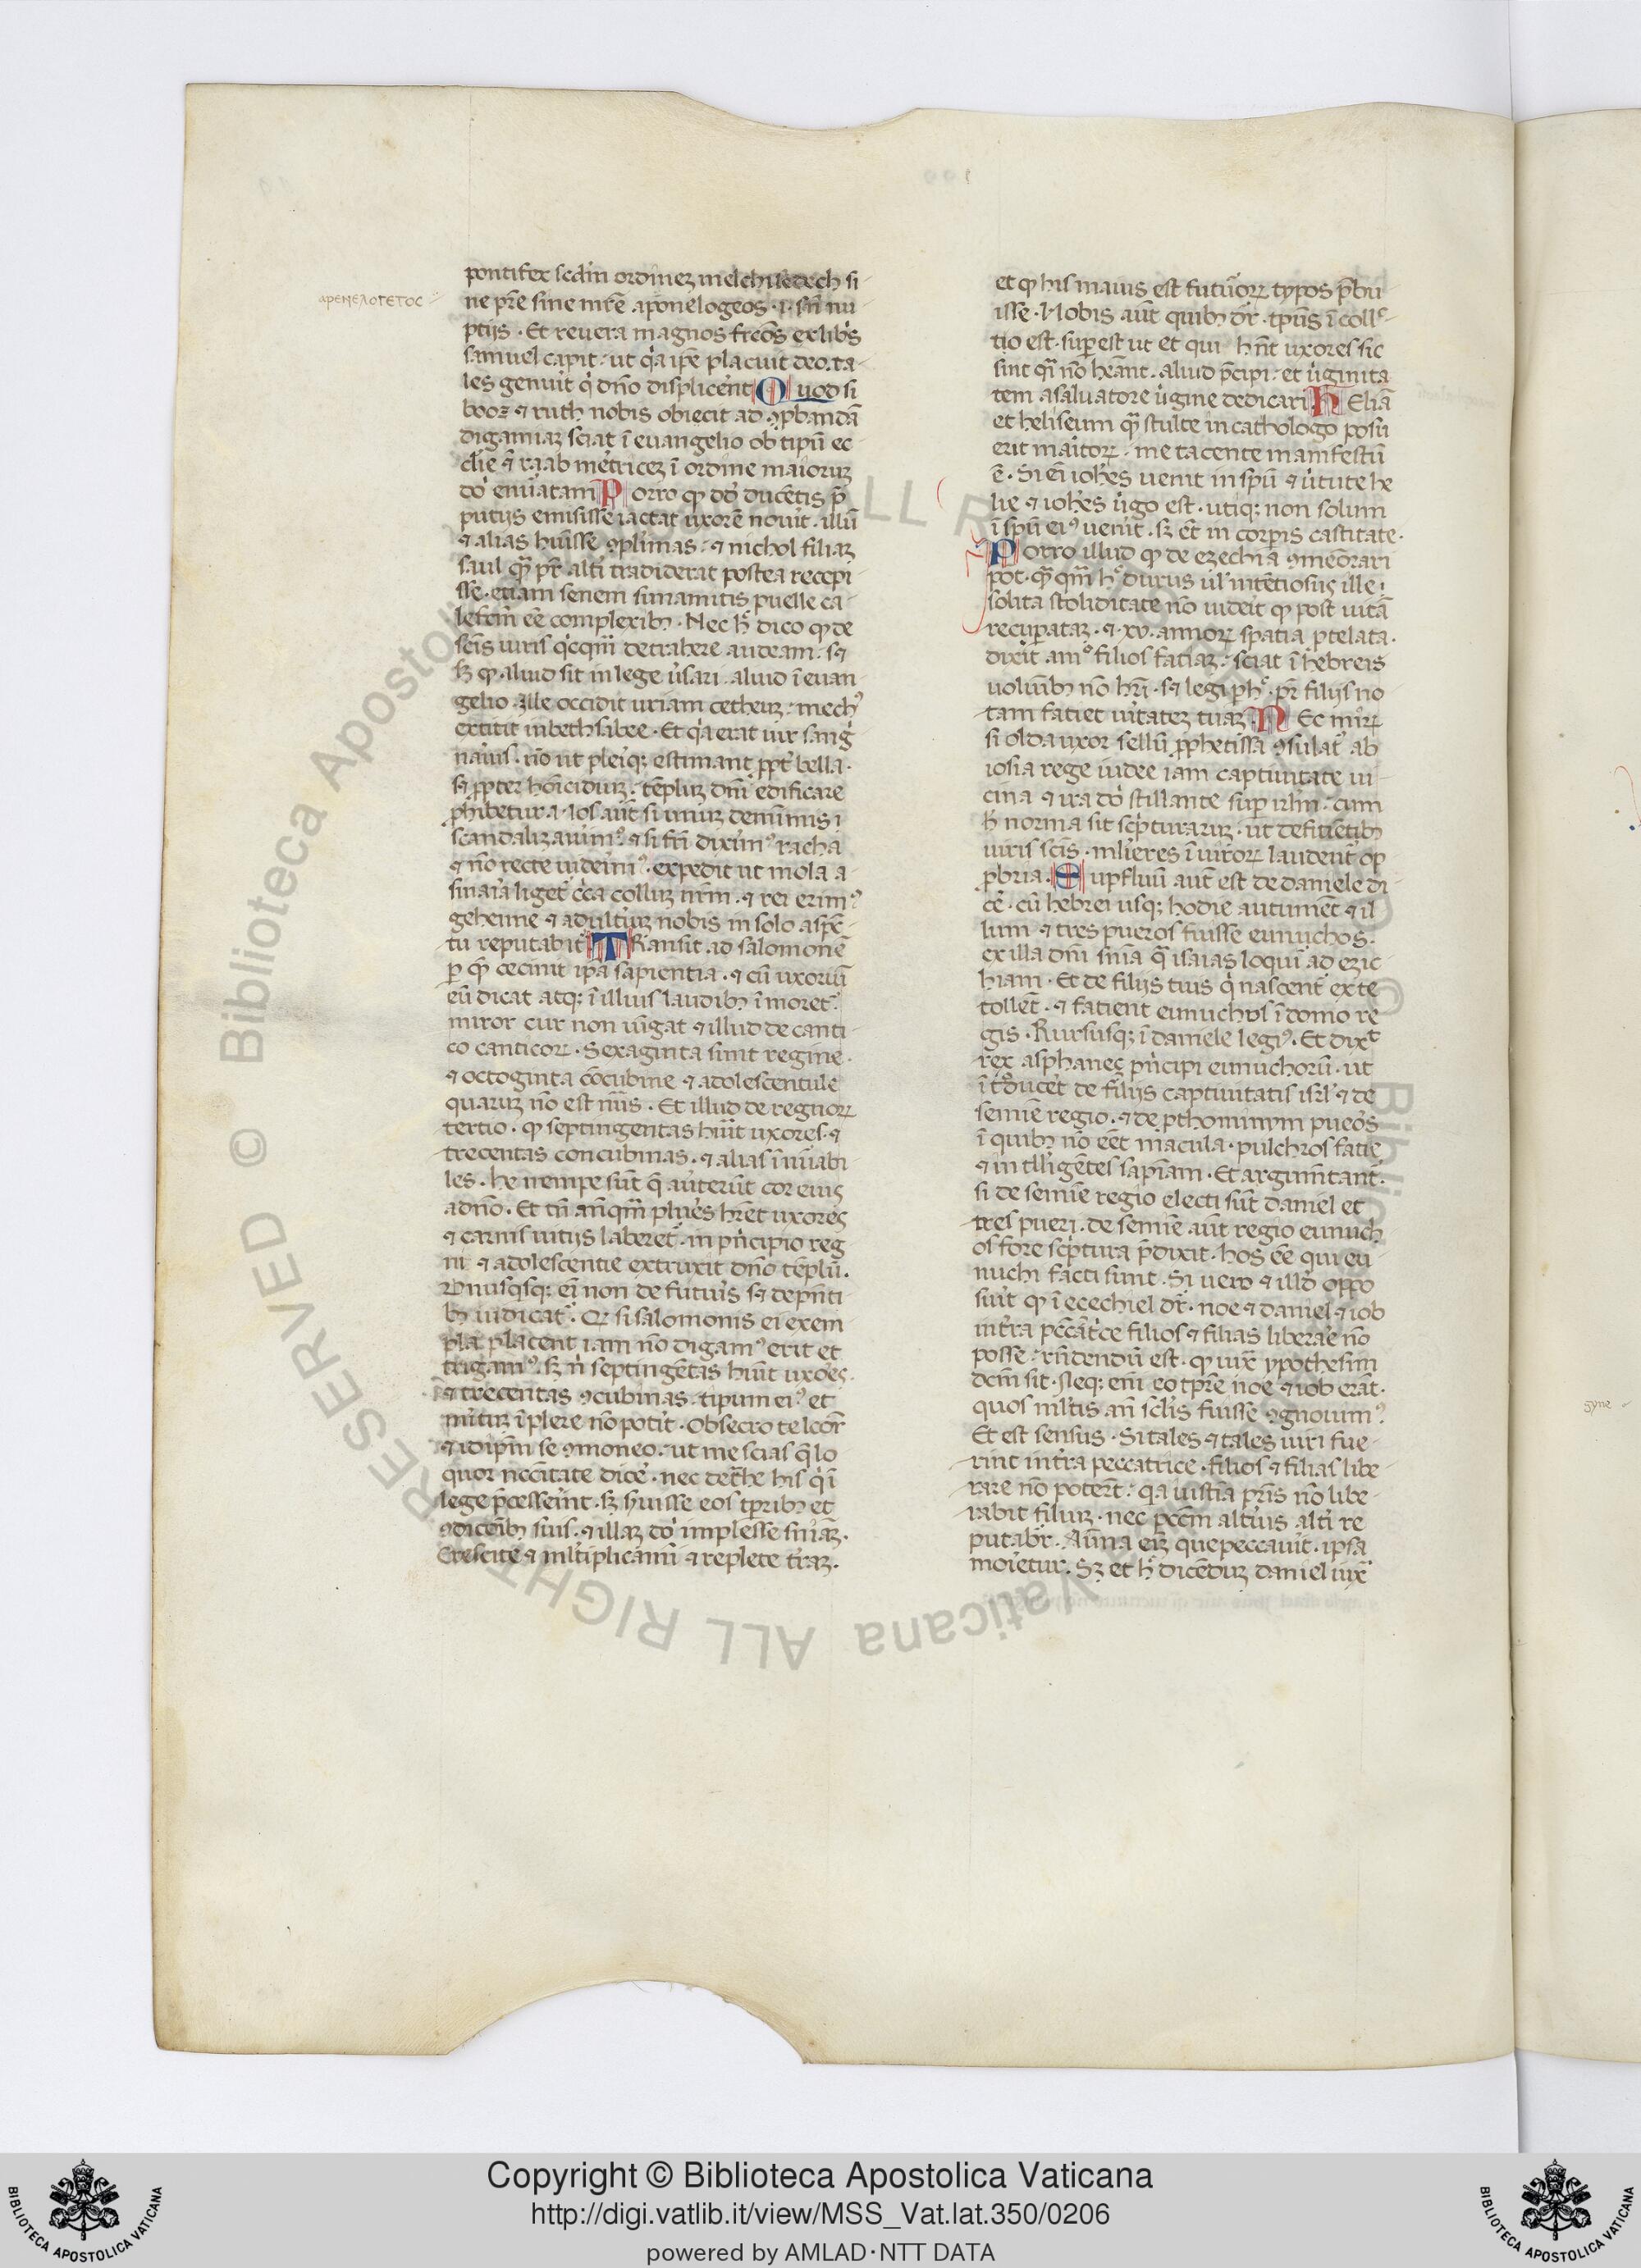 αρενελογετος
pontifex scd̄m ordineʒ melchisedech si
ne pr̄e sine mr̄e aponelogeos · i· sn̄ nu
ptijs · Et revera magnos frc̄os ex lib̾s
samuel capit · ut q̾a ip̄e placuit deo · ta
les genuit q̾ dn̄o displicent Quod si
booz ⁊ ruth nobis obiecit ad ꝯꝓbandā
digamiaʒ sciat ī evangelio ob tipū ec
clīe ⁊ raab met̾triceʒ ī ordine maioruʒ
dn̄i enūatam Porro ꝙ dd̄ ducētis p̄
putijs emisisse iactat uxorē novit · illū
⁊ alias hūisse ꝯplimas · ⁊ nichol filiaʒ
saul quā pr̄ alt̾i tradiderat postea recepi
sse · etiam senem sunamitis puelle ca
lefc̄m eē complexibꝫ · Nec h̄ dico ꝙ de
sc̄is viris q̾cq̄m detrahere audeam · sꝫ
ꝙ aliud sit in lege v̾sari · aliud ī evan
gelio · Ille occidit uriam cetheuʒ · mechꝰ
extitit in bethsabee · Et q̾a erat uir sang̾
nariꝰ · nō ut pleiqꝫ estimant ꝓpt̾ bella ·
sꝫ ꝓpter hōicidiuʒ · tēpluʒ dn̄i edificare
ꝓhibetur · Nos aūt si unuʒ de minimis
scandaliʒavimꝰ · ⁊ si fr̄i dixim̾ꝰ racha
⁊ nō recte videim̾ꝰ · expedit ut mola a
sinaria liget̾ c̾ca colluʒ nr̄m · ⁊ rei erimꝰ
gehenne ⁊ adult̾iuʒ nobis in solo aspec
tu reputabit̾ Transit ad salomonē
ꝑ quē cecinit ip̄a sapientia · ⁊ cū uxoriū
eū dicat atqꝫ ī illius laudibꝫ īmoret̾
miror cur non iūgat ⁊ illud de canti
co canticoꝝ · Sexaginta sunt regine ·
⁊ octoginta cōcubine ⁊ adolescentule
quaruʒ nō est nūs · Et illud de regnoꝝ
tertio · ꝙ septingentas hūit uxores ⁊
trecentas concubinas · ⁊ alias īnūabi
les · he nempe sūt q̄ av̾terūt cor eius
a dn̄o · Et tn̄ an̄q̄m plures hr̄et uxores
⁊ carnis vitijs laberet̾ · in pn̾cipio reg
ni ⁊ adolescentie extruxit dn̄o tēplū ·
Unusq̾sqꝫ ei̾ non de futuris sꝫ de pn̄ti
bꝫ iudicat̾ · Qꝛ si salomonis ei exem
pla placent iam nō digamꝰ erit et
trigamꝰ · sꝫ n̾ septingētas hūit uxoes ·
⁊ trecentas ꝯcubinas · tipum eiꝰ et
mituʒ īplere nō potit · Obsecro te lcor̄
⁊ id ip̄m se ꝯmoneo · ut me scias q̄ lo
quor ncc̄itate dice̾ · nec det̾he his q̾ ī
lege p̄cesseīnt · sꝫ s̾uisse eos tp̄ribꝫ et
ꝯdictōibꝫ suis · ⁊ illaʒ dn̄i implesse sn̄iaʒ ·
Crescite ⁊ ml̾tiplicāmī ⁊ replete t̾raʒ ·
et ꝙ his maius est futūoꝝ typos p̄bu
isse · Nobis aūt quibꝫ dr̄ · tp̄us ī collꝰ
tio est · sup̄est ut et qui hn̄t uxores sic
sint q̄si nō hēant · aliud p̄cipi · et v̾ginita
tem a salvatore v̾gine dedicari Heliā
et heliseum q̄m stulte in cathologo posu
erit maritoꝝ · me tacente manifestū
ē · Si eī ioh̾es venit in spū ⁊ v̾tute he
lie ⁊ ioh̾es v̾go est · utiqꝫ non solum
ī spū eiꝰ venit · sꝫ et̄ in corpis castitate ·
Porro illud ꝙ de ezechia ꝯmeōrari
pot̄ · q̄q̄m h̾ durus ul̾ intētiosius ille
solita stoliditate nō videīt ꝙ post vitā
recup̄ataʒ · ⁊ · xv · annoꝝ spatia ꝓtelata ·
dixit amō filios fatiaʒ · sciat ī hebreis
voluībꝫ nō hr̄i · sꝫ legi ph̾ · pr̄ filijs no
tam fatiet v̾itateʒ tuaʒ Nec miꝝ
si olda uxor sellū ꝓphetissa ꝯsulat̾ ab
iosia rege iudee iam captivitate vi
cina ⁊ ira dn̄i stillante sup̄ irl̄m · cum
h̄ norma sit sc̾pturaruʒ · ut defitiētibꝫ
viris sc̄is · ml̾ieres ī viroꝝ laudent̾ op
ꝓbria · Supfluū aut̄ est de daniele di
ce̾ · cū hebrei usqꝫ hodie autumēt ⁊ il
lum ⁊ tres pueros fuisse eunuchos ·
ex illa dn̄i sn̄ia q̄m isaias loquit̾ ad ezic
hiam · Et de filijs tuis q̾ nascent̾ ex te
tollēt · ⁊ fatient eunuchos ī domo re
gis · Rursusqꝫ ī daniele legit̾ · Et dixt
rex asphanec pn̾cipi eunuchorū · ut
ītroducet̾ de filijs captivitatis isrl̾ ⁊ de
semīe regio · ⁊ de ꝓthominum pueos
ī quibꝫ nō eēt macula · pulchros fatie
⁊ intll̾igētes sapīam · Et argum̄tant̾ ·
si de semīe regio electi sūt daniel et
tres pueri · de semīe aūt regio eunuch
os fore sc̾ptura p̄dixit · hos eē qui eu
nuchi facti sunt · Si vero ⁊ illd̾ oppo
suit̾ ꝙ ī ecechiel dr̄ · noe ⁊ daniel ⁊ iob
in t̾ra pcc̄at̾ce filios ⁊ filias libera̾e nō
posse · rn̄dendū est · ꝙ iux̄ ypothesim
dcm̄ sit · Neqꝫ enī eo tp̄re noe ⁊ iob erāt ·
quos ml̾tis an̄ sc̄lis fuisse ꝯgnovimꝰ
Et est sensus · Si tales ⁊ tales viri fue
rint in t̾ra peccatrice · filios ⁊ filias libe
rare nō poterūt · q̾a iustīa pr̄is nō libe
rabit filiuʒ · nec pcc̄m alt̾ius alt̾i re
putabr̄ · Aīa eīʒ que peccavit · ipsa
moriet̾ur · Sꝫ et h̾ dicēduʒ daniel iux̄
gyne
Copyright © Biblioteca Apostolica Vaticana
http://digi.vatlib.it/view/MSS_Vat.lat.350/0206
powered by AMLAD·NTT DATA
BIBLIOTECA APOSTOLICA VATICANA
BIBLIOTECA APOSTOLICA VATICANA
© Biblioteca Apostolica Vaticana ALL RIGHTS RESERVED